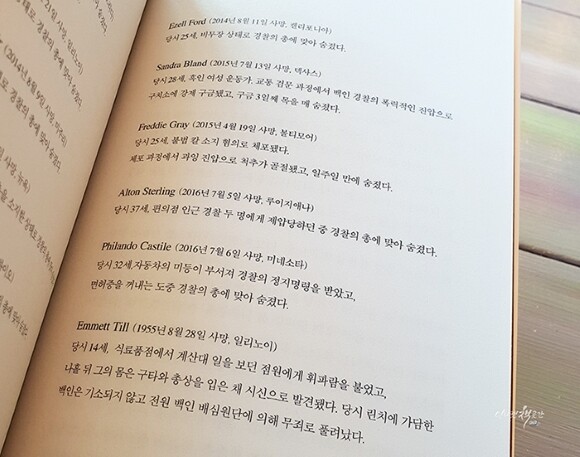 Ezell Ford (2014년 8월 11일 사망, 캘리포니아)
당시 25세, 비무장 상태로 경찰의 총에 맞아 숨졌다.
Sandra Bland (2015년 7월 13일 사망, 텍사스)
당시 28세, 흑인 여성 운동가. 교통 검문 과정에서 백인 경찰의 폭력적인 진압으로
구치소에 강제 구금됐고, 구금 3일째 목을 매 숨졌다.
Freddie Gray (2015년 4월 19일 사망, 볼티모어)
당시 25세, 불법 칼 소지 혐의로 체포됐다.
체포 과정에서 과잉 진압으로 척추가 골절됐고, 일주일 만에 숨졌다.
Alton Sterling (2016년 7월 5일 사망, 루이지애나)
당시 37세, 편의점 인근 경찰 두 명에게 제압당하던 중 경찰의 총에 맞아 숨졌다.
Philando Castile (2016년 7월 6일 사망, 미네소타)
당시 32세, 자동차의 미등이 부서져 경찰의 정지명령을 받았고,
면허증을 꺼내는 도중 경찰의 총에 맞아 숨졌다.
Emmett Till (1955년 8월 28일 사망, 일리노이)
당시 14세, 식료품점에서 계산대 일을 보던 점원에게 휘파람을 불었고,
나흘 뒤 그의 몸은 구타와 총상을 입은 채 시신으로 발견됐다. 당시 린치에 가담한
백인은 기소되지 않고 전원 백인 배심원단에 의해 무죄로 풀려났다.